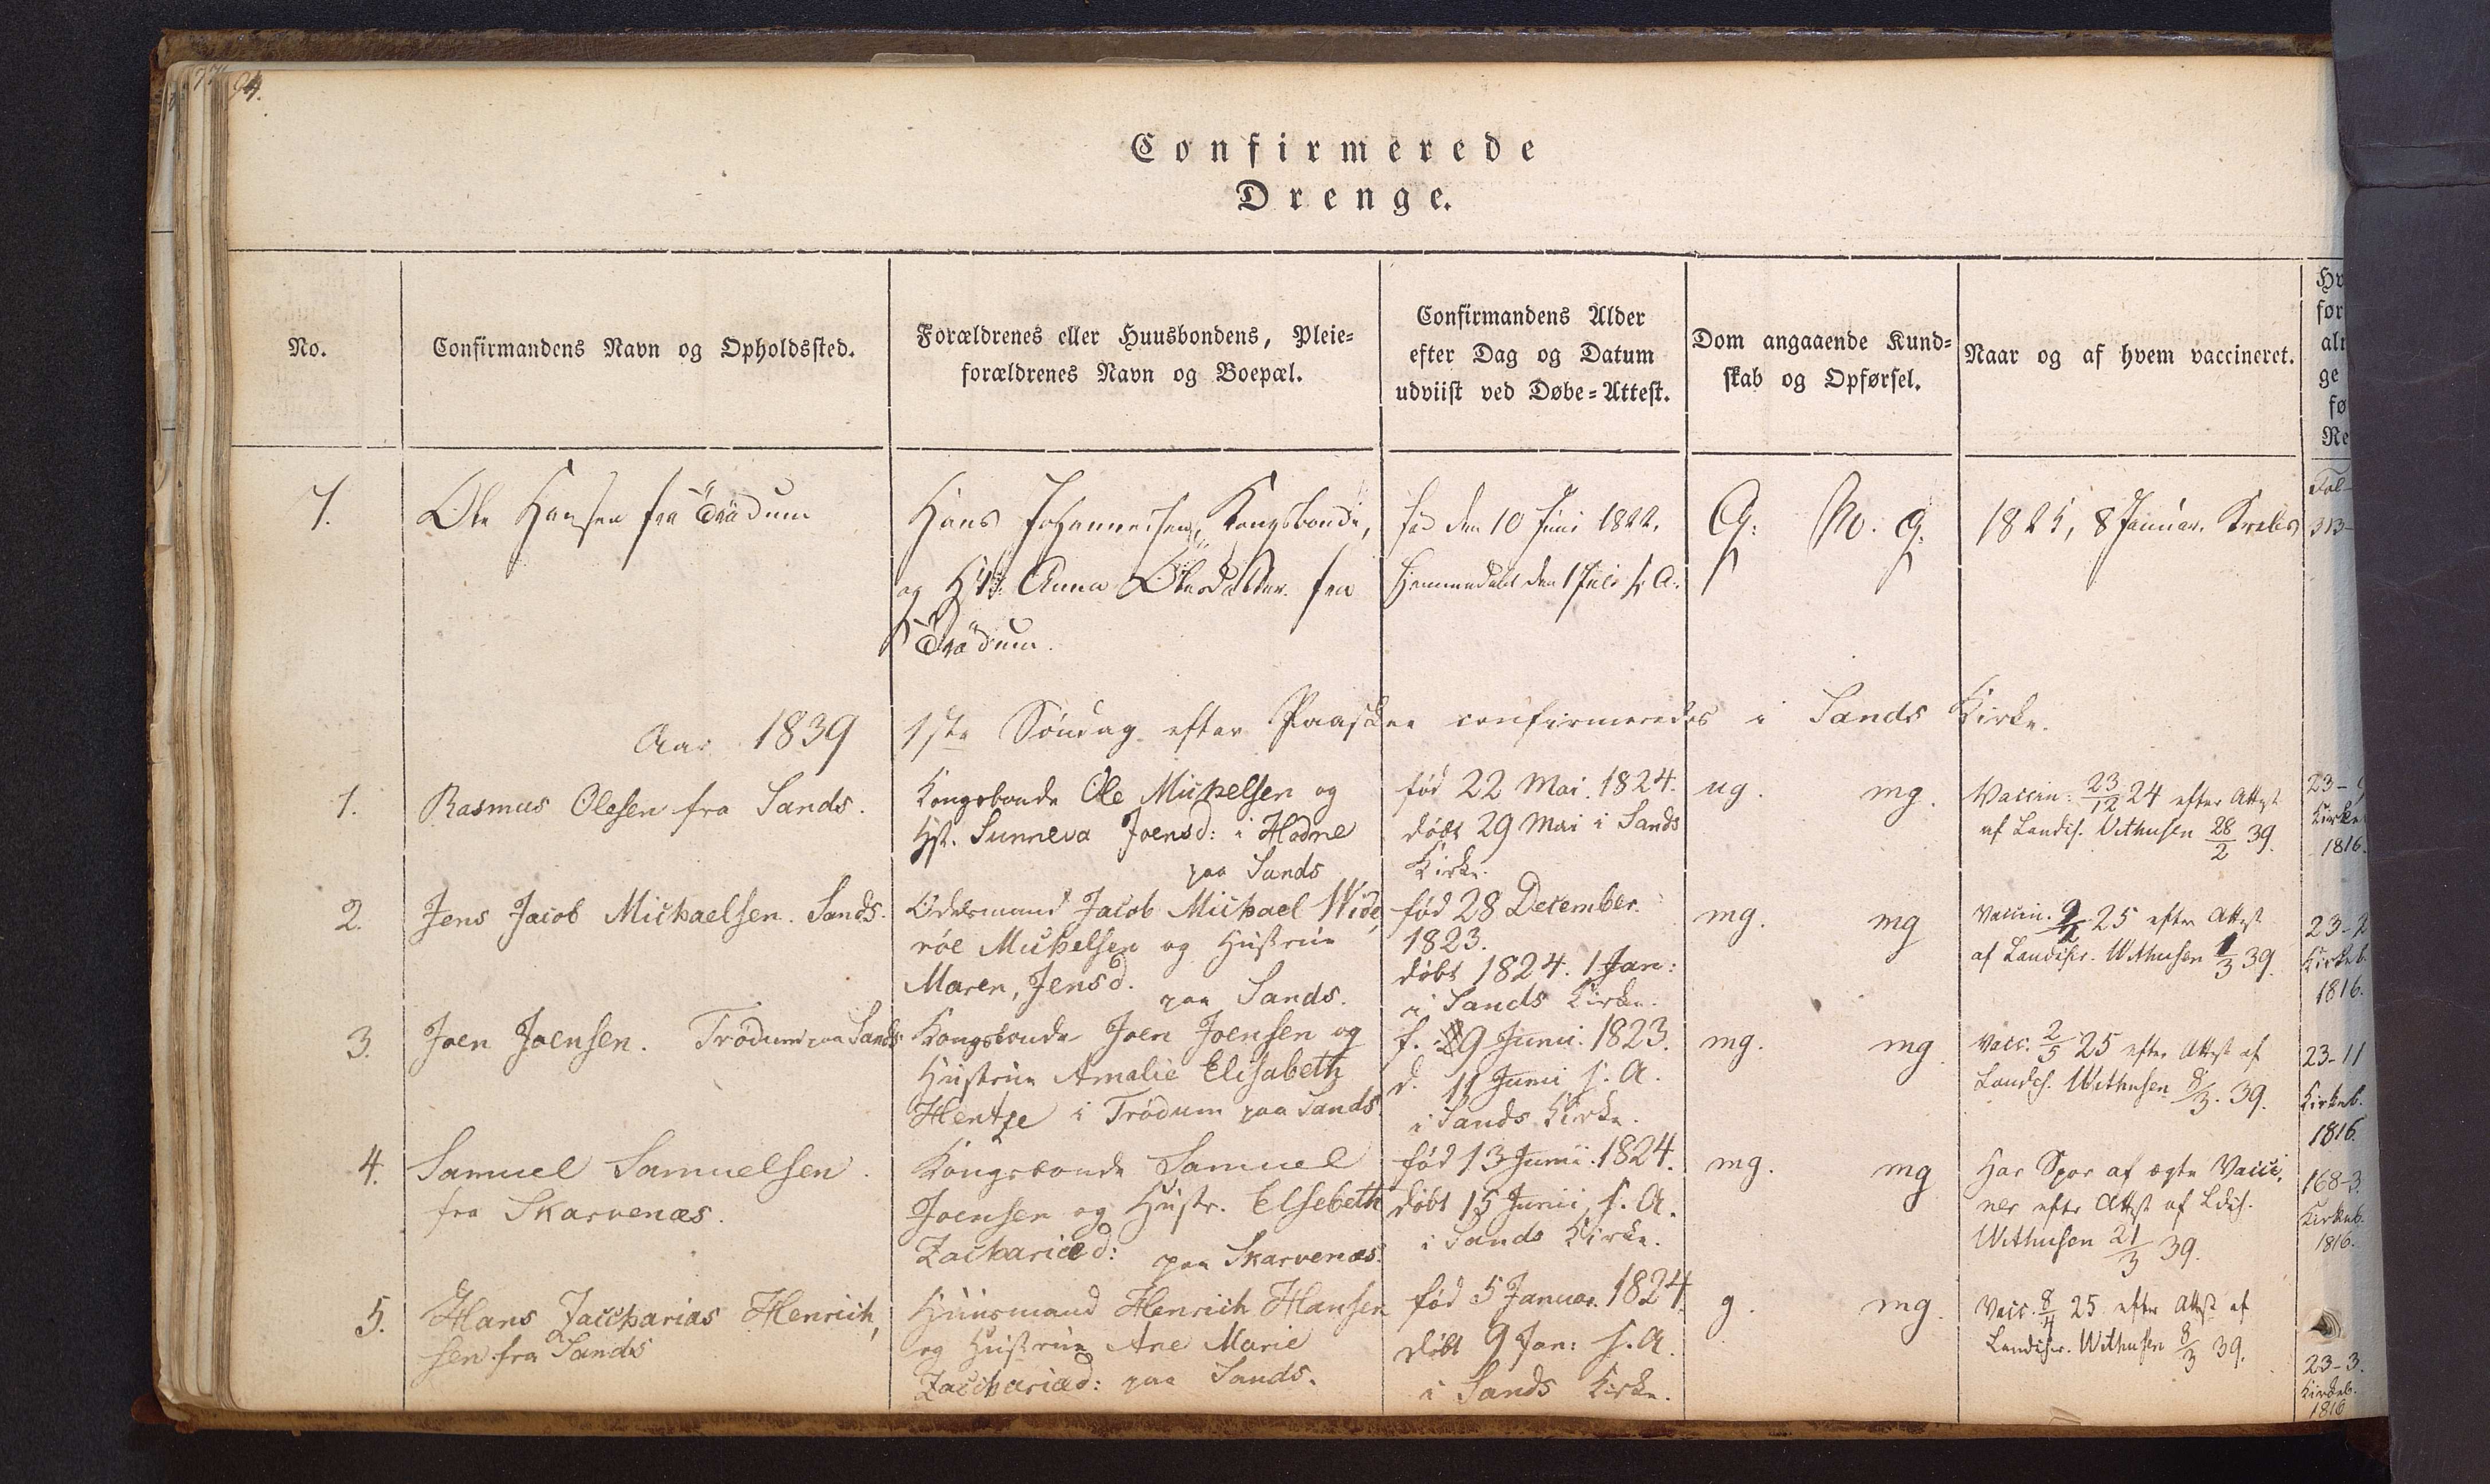 94.
Confirmerede
Drenge.
No.
Confirmandens Navn og Opholdssted.
Forældrenes eller Huusbondens, Pleie=
forældrenes Navn og Boepæl.
Confirmandens Alder
efter Dag og Datum
udviist ved Døbe=Attest.
Dom angaaende Kund=
skab og Opførsel.
Naar og af hvem vaccineret.
Hv
for
alm
ge
fø
Re
1.
Ole Hansen fra Trödum
Hans Johannesen, Kongsbonde,
og Hst: Anna Olesdatter fra
Trödum.
fød den 10 Juni 1822.
Hjemmedøbt den 1 Juli s. A.
G. M. g.
1825, 8 Januar. Krebs
Fol-
313-
Aar 1839
1ste Søndag efter Paaske confirmeredes i Sands Kirke.
1.
Rasmus Olesen fra Sands.
Kongsbonde Ole Michelsen og
Hst. Sunneva Joensd: i Hadne
paa Sands
født 22 Mai. 1824.
døbt 29 Mai i Sands
Kirke.
ug. mg.
Vaccin: 23/12 24 efter Attest
af Landch. Withusen 28/2 39.
23-9
Kirkeb
1816.
2.
Jens Jacob Michaelsen. Sands.
Odelsmand Jacob Michael Wide,
röe Michelsen og Hustrue
Maren, Jensd. paa Sands.
född 28 December.
1823.
döbt 1824. 1 Jan:
i Sands Kirke.
mg. mg
Vaccin. 9/2 25 efter Attest
af Landchir. Withusen 1/3 39.
23-2
Kirkeb.
1816.
3.
Joen Joensen. Trödum paa Sands
Kongsbonde Joen Joensen og
Hustrue Amalie Elisabeth
Hentze i Trödum paa Sands
f. 9 Junii. 1823.
d. 11 Junii s. A.
i Sands Kirke.
mg. mg.
Vacc. 2/5 25 efter Attest af
Landch. Withusen 8/3. 39.
23-11
Kirkeb.
1816.
4.
Samuel Samuelsen.
fra Skarvenæs.
Kongsbonde Samuel
Joensen og Hustr. Elsebeth
Zachariæd: paa Skarvenæs.
född 13 Junii. 1824.
döbt 15 Junii, s. A.
i Sands Kirke.
mg. mg
Har Spor af ægte Vacci,
ner efter Attest af Ldch.
Withusen 21/3 39.
168-3.
Kirkeb.
1816.
5.
Hans Zaccharias Henrich,
sen fra Sands
Huusmand Henrich Hansen
og Hustrue Ane Marie
Zacchariad: paa Sands.
född 5 Januar. 1824.
döbt 9 Jan: s. A.
i Sands Kirke.
g. mg.
Vacc. 8/4 25 efter Attest af
Landchir. Withusen 8/3 39.
23-3.
Kirkeb.
1816